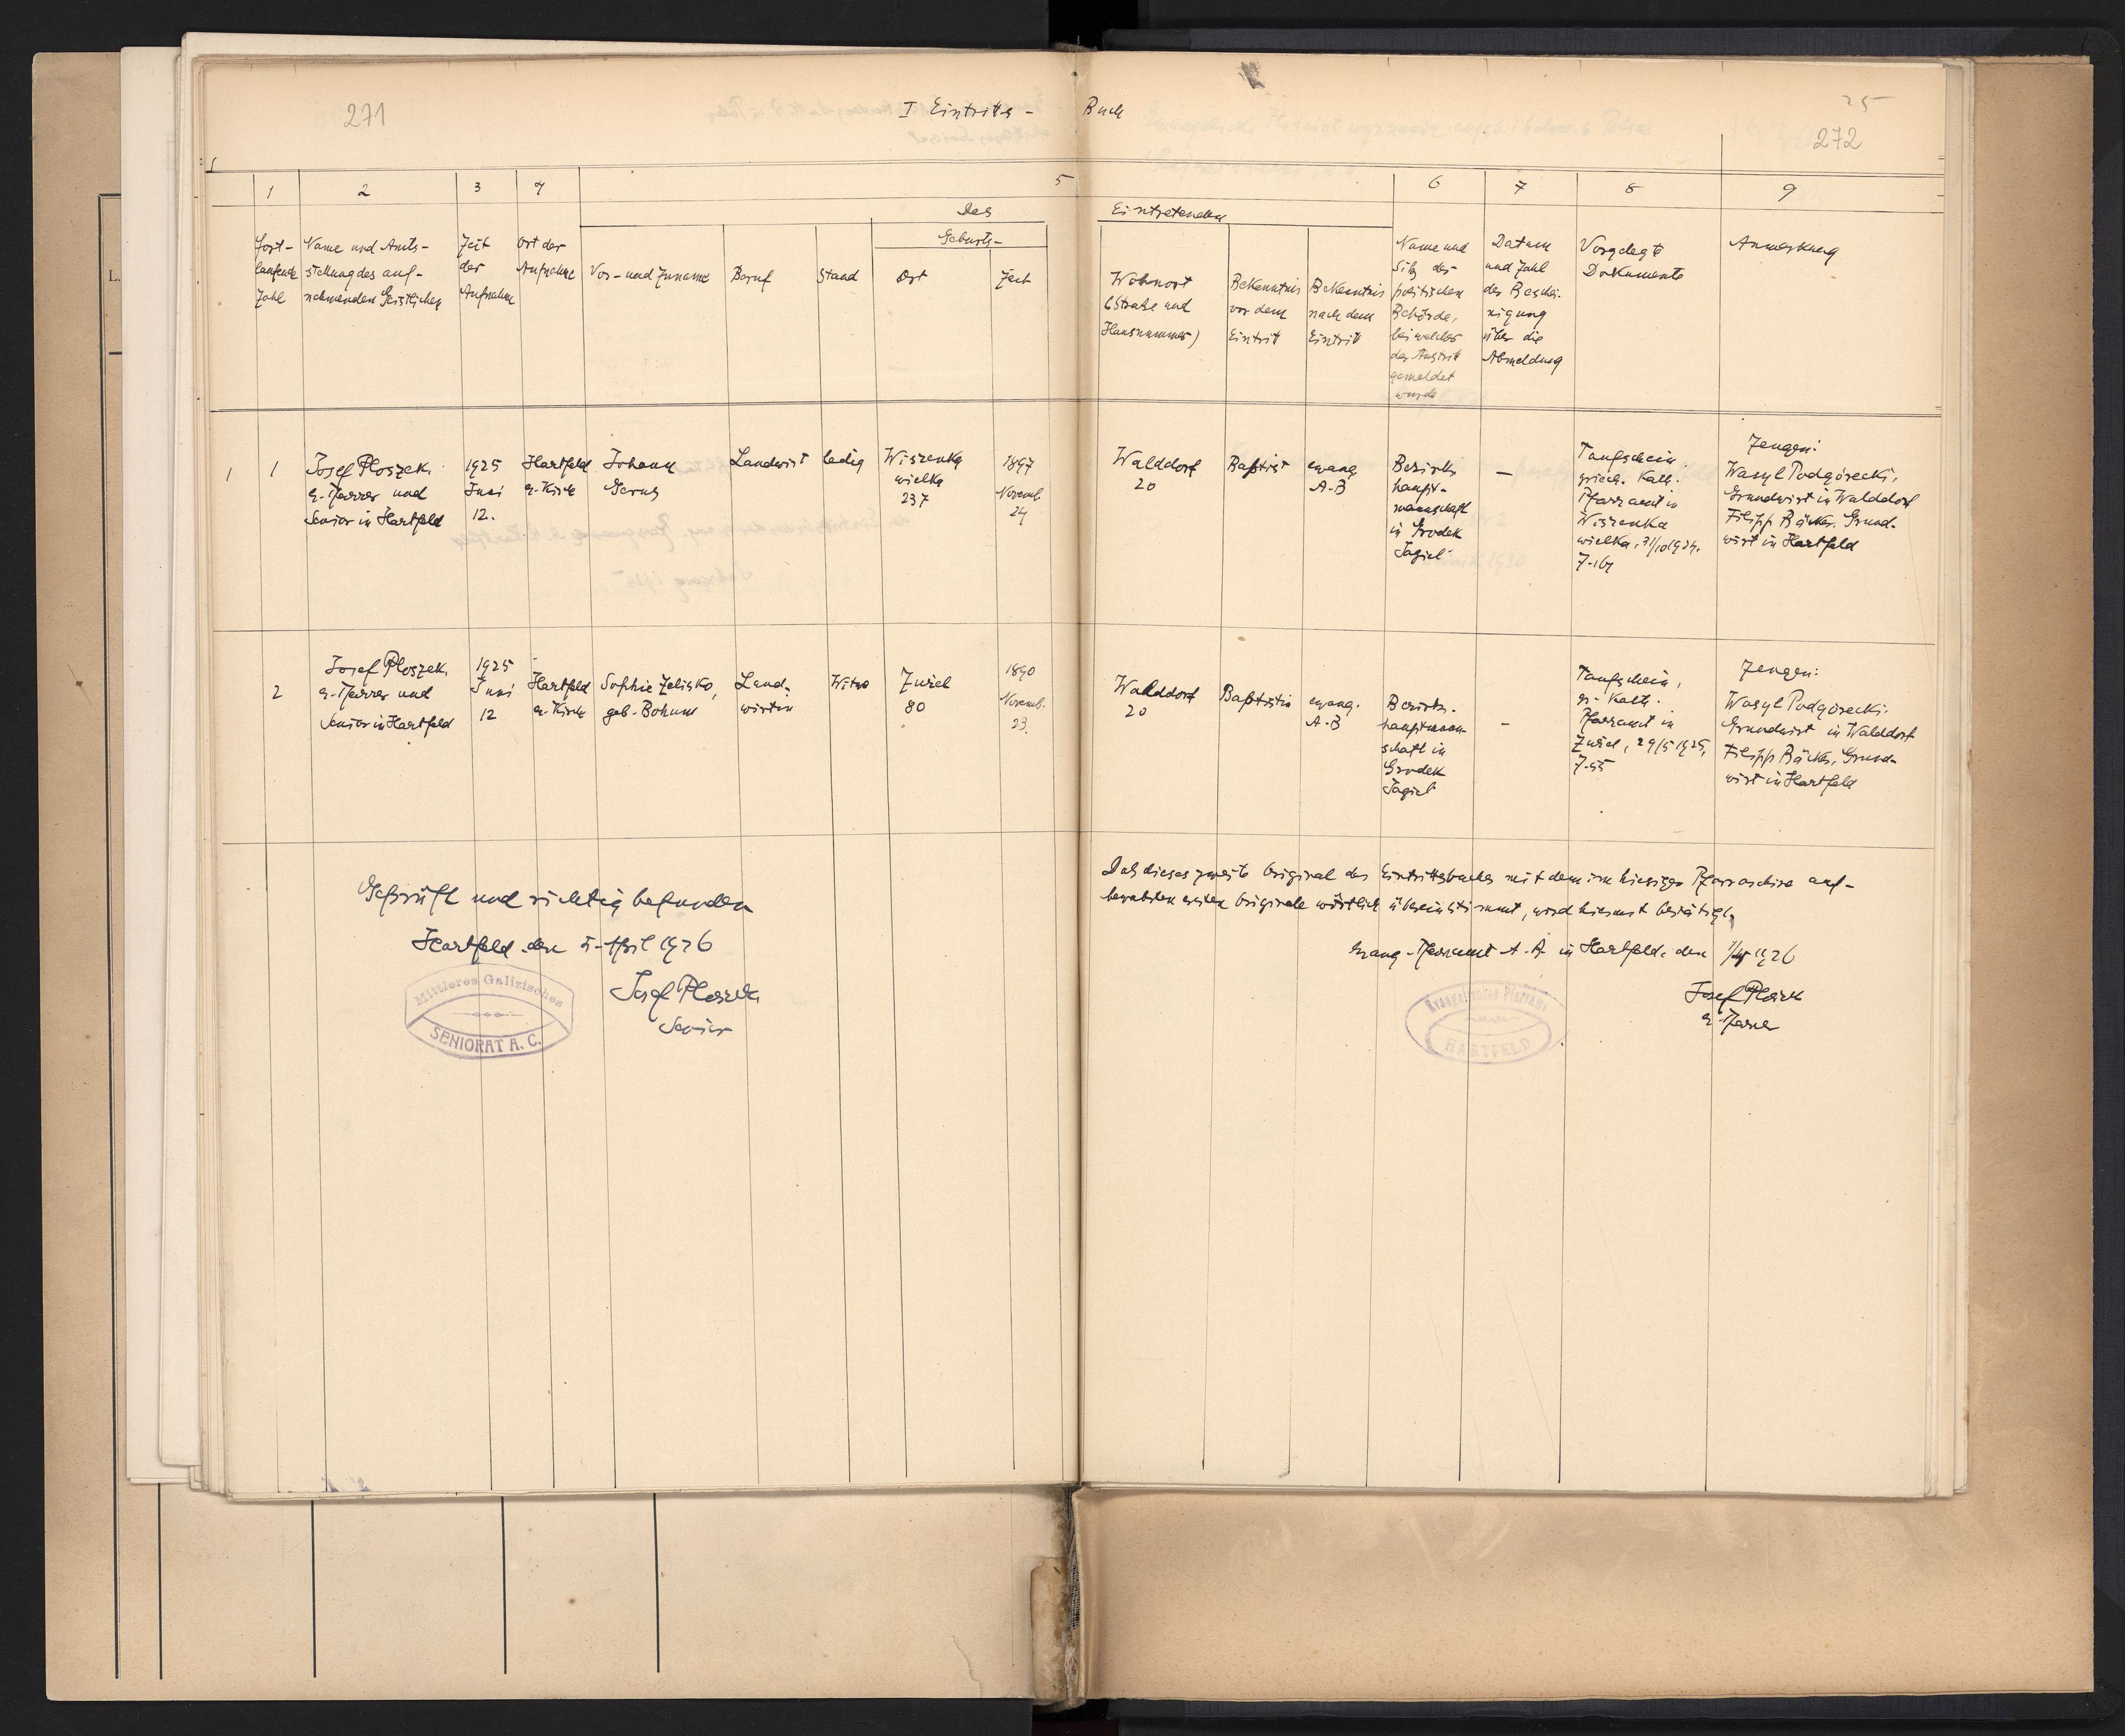 271
I Eintritts - Buch
25
272
1 2 3 4 5 6 7 8 9
Des Eintretenden
Geburts-
Fort-
laufende
Zahl
Name und Amts-
stellung des auf-
nehmenden Geistlichen
Zeit
der
Aufnahme
Ort der
Aufnahme
Vor- und Zuname
Beruf
Stand
Ort
Zeit
Wohnort
(Straße und
Hausnummer)
Bekenntnis
vor dem
Eintritt
Bekenntnis
nach dem
Eintritt
Name und
Sitz der
politischen
Behörde,
bei welcher
der Austritt
gemeldet
wurde
Datum
und Zahl
der Beschei-
nigung
über die
Abmeldung
Vorgelegte
Dokumente
Anmerkung
1
1
Josef Ploszek.
e. Pfarrer und
Senior in Hartfeld
1925
Juni
12.
Hartfeld
e. Kirche
Johann
Landwirt
ledig
Wiszenka
wielka
237
1897
Novemb.
24
Walddorf
20
Baptist
evang
A.B
Bezirks
haupt-
mannschaft
in Grodek
Jagiel.
—
Taufschein,
griech. Kath.
Pfarramt in
Wiszenka
wielka,
Zeugen:
Wasyl Podgórecki,
Grundwirt in Walddorf
Filipp Bäcker, Grund-
wirt in Hartfeld
2
Josef Ploszek,
e. Pfarrer und
Senior in Hartfeld
1925
Juni
12
Hartfeld
e. Kirche
Sophie Zelisko,
geb. Bohum
Land-
wirtin
Witwe
Zuziel
80
1890
Novemb.
23.
Walddorf
20
Baptistin
evang.
A.B
Bezirks-
hauptmann-
schaft in
Grodek
Jagiel
-
Taufschein,
gr. Kath.
Pfarramt in
Zuziel, 29/5 1925,
Z.55
Zeugen:
Wasyl Podgórecki,
Grundwirt in Walddorf
Filipp Bäcker, Grund-
wirt in Hartfeld
Geprüft und richtig befunden
Hartfeld den 5. April 1926
Josef Ploszek
Senior
Mittleres Galizisches
SENIORAT A. C.
Daß dieses zweite Original des Eintrittsbuches mit dem im hiesigen Pfarrarchive auf-
bewahrten ersten Originale wörtlich übereinstimmt, wird hiermit bestätigt.
Evang. Pfarramt A.B. in Hartfeld, den 1926
Josef Ploszek
e. Pfarrer
Evangelisches Pfarramt
HARTFELD